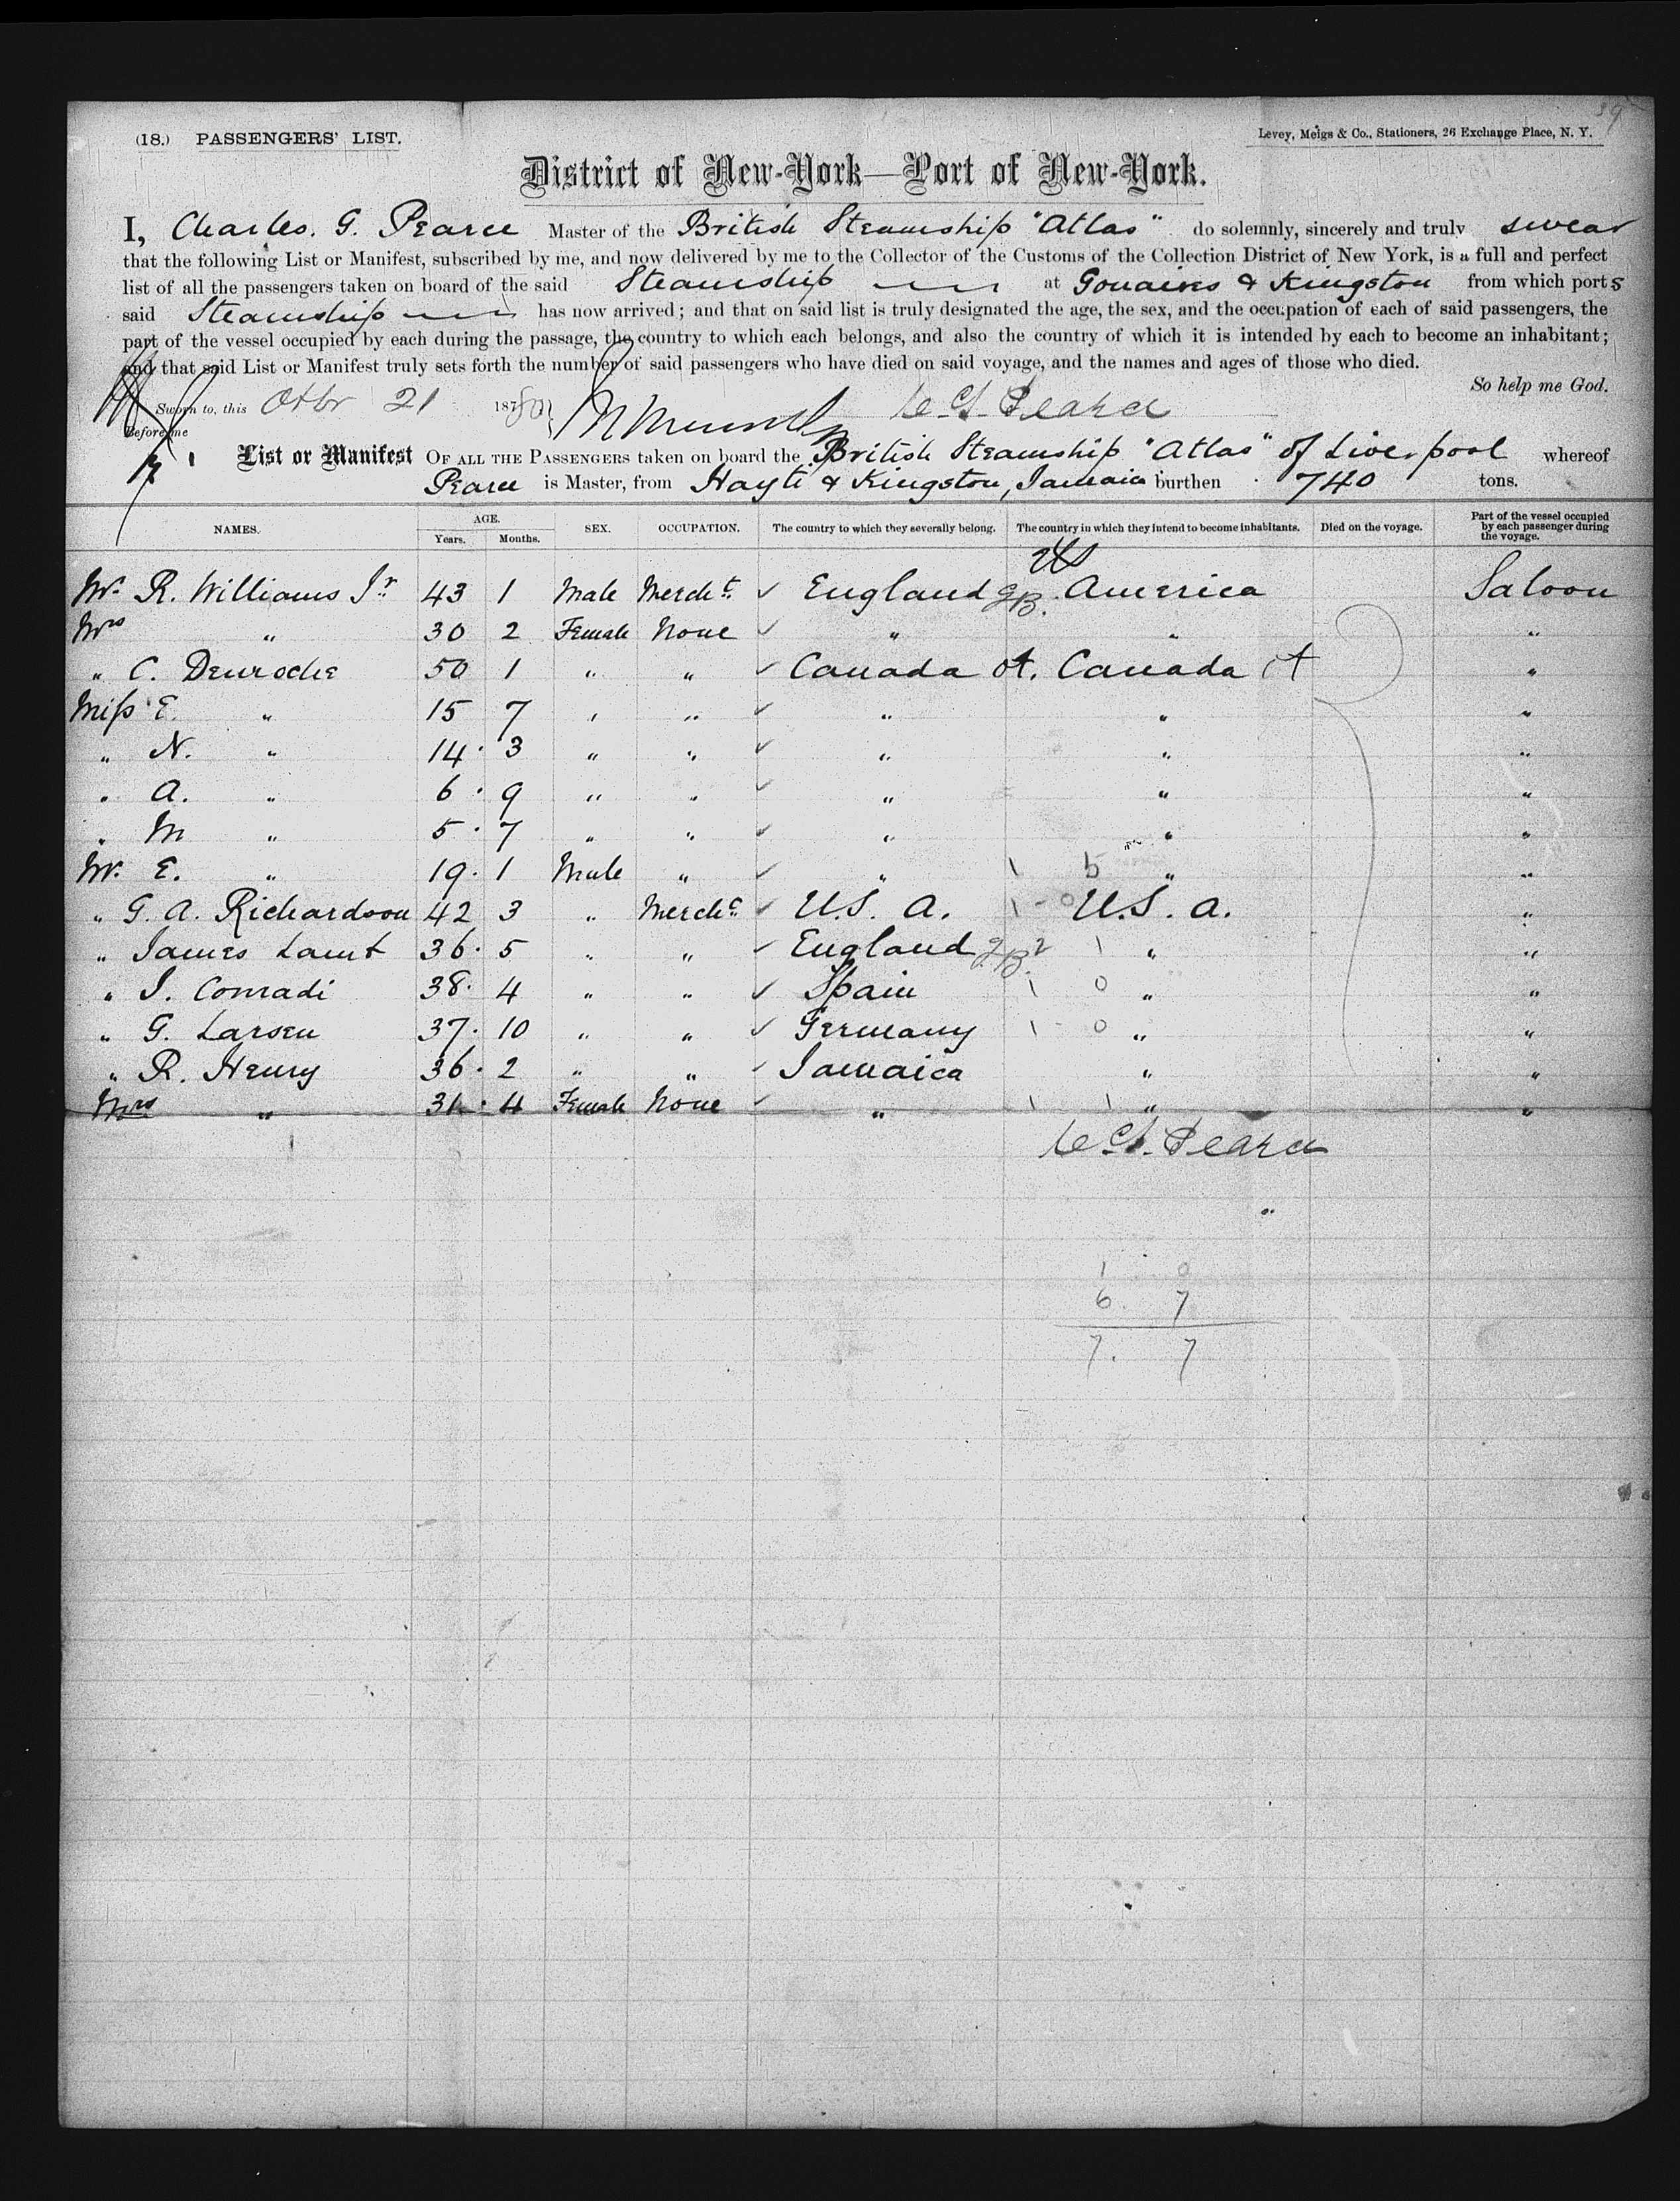 39
(18.) PASSENGERS' LIST.
Levey, Meigs & Co., Stationers, 26 Exchange Place, N. Y.
District of New-York—Port of New-York.
I, Charles. G. Pearce Master of the British Steamship "Atlas" do solemnly, sincerely and truly swear
that the following List or Manifest, subscribed by me, and now delivered by me to the Collector of the Customs of the Collection District of New York, is a full and perfect
list of all the passengers taken on board of the said Steamship at Gonaives & Kingston from which ports
said Steamship has now arrived; and that on said list is truly designated the age, the sex, and the occupation of each of said passengers, the
part of the vessel occupied by each during the passage, the country to which each belongs, and also the country of which it is intended by each to become an inhabitant;
and that said List or Manifest truly sets forth the number of said passengers who have died on said voyage, and the names and ages of those who died.
So help me God.
Sworn to, this Octbr 21 1880 C. G. Pearce
Before me
List or Manifest OF ALL THE PASSENGERS taken on board the British Steamship "Atlas" of Liverpool whereof
Pearce is Master, from Hayti & Kingston, Jamaica burthen 740 tons.
NAMES. AGE. Years. Months. SEX. OCCUPATION. The country to which they severally belong. The country in which they intend to become inhabitants. Died on the voyage. Part of the vessel occupied by each passenger during the voyage.
US
Mr. R. Williams Jr 43 1 Male Mercht. ✓ England GB. America Saloon
Mrs " 30 2 Female None ✓ " " "
" C. Denroche 50 1 " " ✓ Canada Canada "
Miss E. " 15 7 " " ✓ " " "
" N. " 14 · 3 " " ✓ " " "
" A. " 6 · 9 " " ✓ " " "
" M " 5 · 7 " " ✓ " " "
Mr. E. " 19 · 1 Male " ✓ " 1 5 " "
" G. A. Richardson 42 3 " Mercht. ✓ U.S. A. 1 - 0 U.S. A. "
" James Lamt 36 · 5 " " ✓ England GB. 2 1 " "
" J. Conradi 38 · 4 " " ✓ Spain 1 0 " "
" G. Larsen 37 · 10 " " ✓ Germany 1 - 0 " "
" R. Henry 36 · 2 " " ✓ Jamaica " "
Mrs " 31 · 4 Female None ✓ " 1 1 " "
C. G. Pearce
"
1 0
6. 7
7. 7